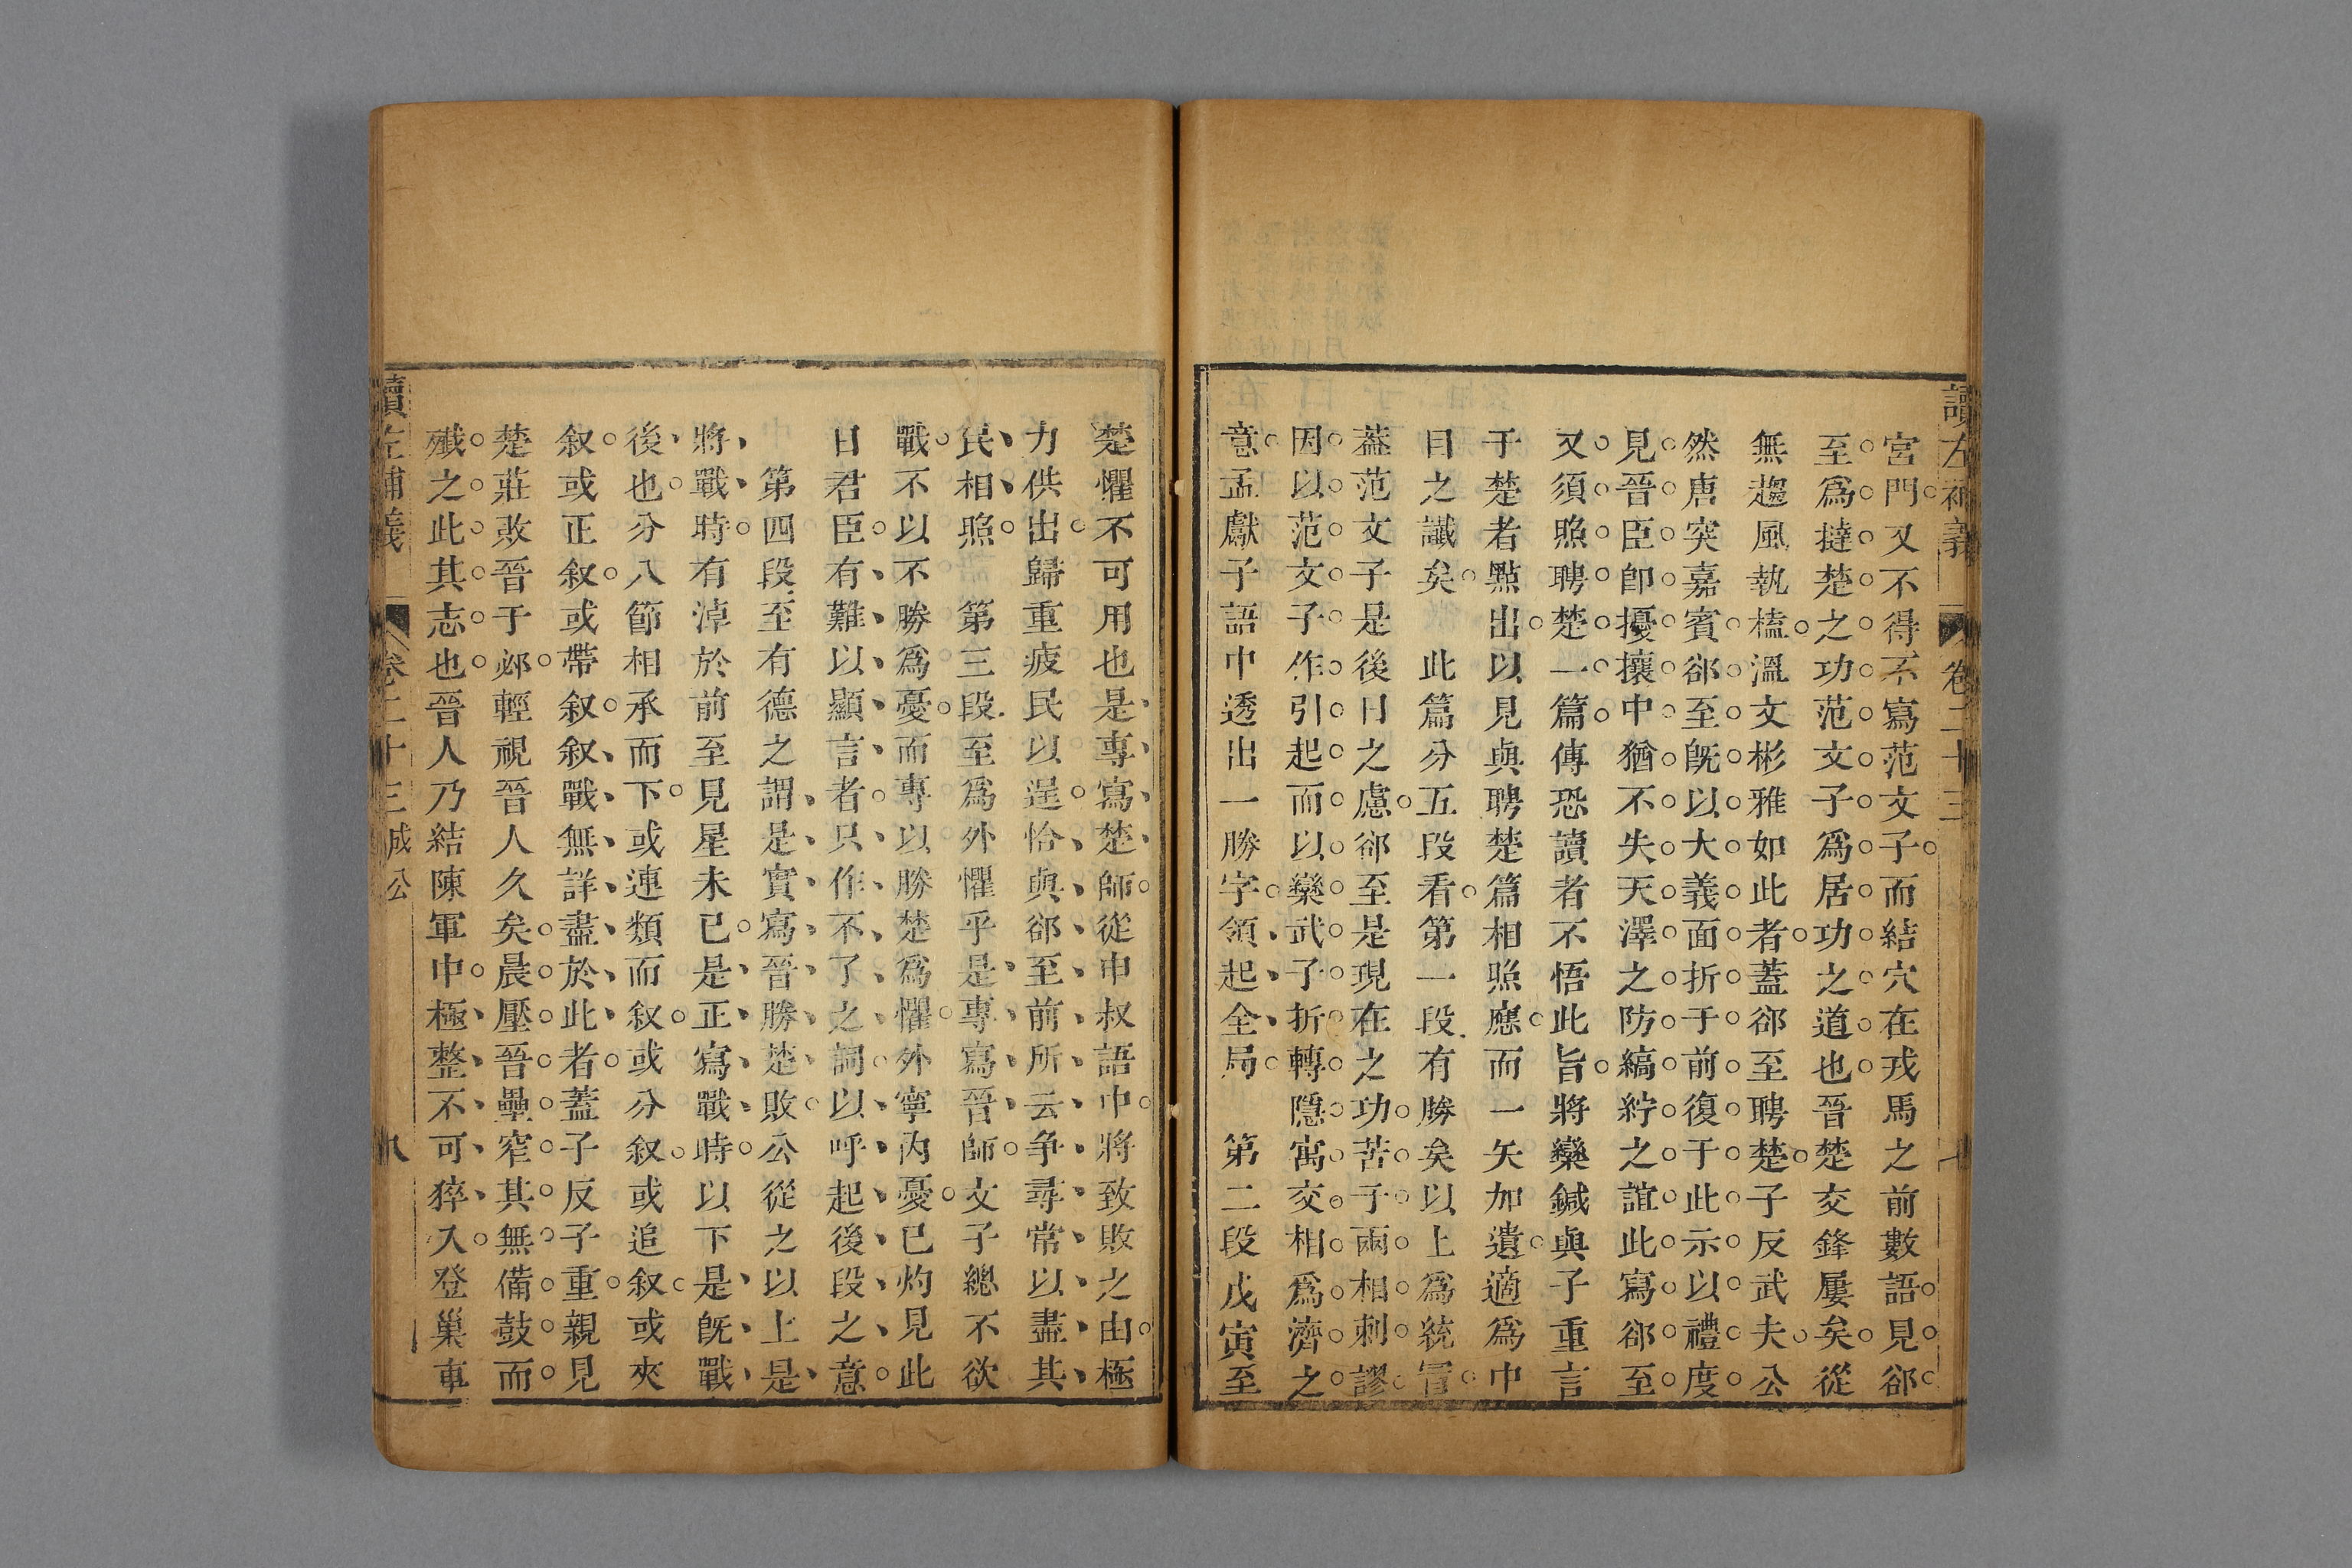 讀左補義 卷二十三
宮門又不得不寫范文子而結穴在戎馬之前數語見郤
至爲撻楚之功范文子爲居功之道也晉楚交鋒屢矣從
無趨風執榼溫文彬雅如此者蓋郤至聘楚子反武夫公
然唐突嘉賓郤至旣以大義面折于前復于此示以禮度
見晉臣卽擾攘中猶不失天澤之防縞紵之誼此寫郤至
又須照聘楚一篇傳恐讀者不悟此旨將欒鍼與子重言
于楚者點出以見與聘楚篇相照應而一矢加遺適爲中
目之讖矣 此篇分五段看第一段有勝矣以上爲統冒
蓋范文子是後日之慮郤至是現在之功苦于兩相刺謬
因以范文子作引起而以欒武子折轉隱寓交相爲濟之
意孟獻子語中透出一勝字領起全局 第二段戊寅至
楚懼不可用也是專寫楚師從申叔語中將致敗之由極
力供出歸重疲民以逞恰與郤至前所云争尋常以盡其
民相照 第三段至爲外懼乎是專寫晉師文子總不欲
戰不以不勝爲憂而專以勝楚爲懼外寧內憂已灼見此
日君臣有難以顯言者只作不了之詞以呼起後段之意
第四段至有德之謂是實寫晉勝楚敗公從之以上是
將戰時有淖於前至見星未已是正寫戰時以下是旣戰
後也分八節相承而下或連類而叙或分叙或追叙或夾
叙或正叙或帶叙叙戰無詳盡於此者蓋子反子重親見
楚莊敗晉于邲輕視晉人久矣晨壓晉壘窄其無備鼓而
殲之此其志也晉人乃結陳軍中極整不可猝入登巢車
讀左補義 卷二十三 成公 八